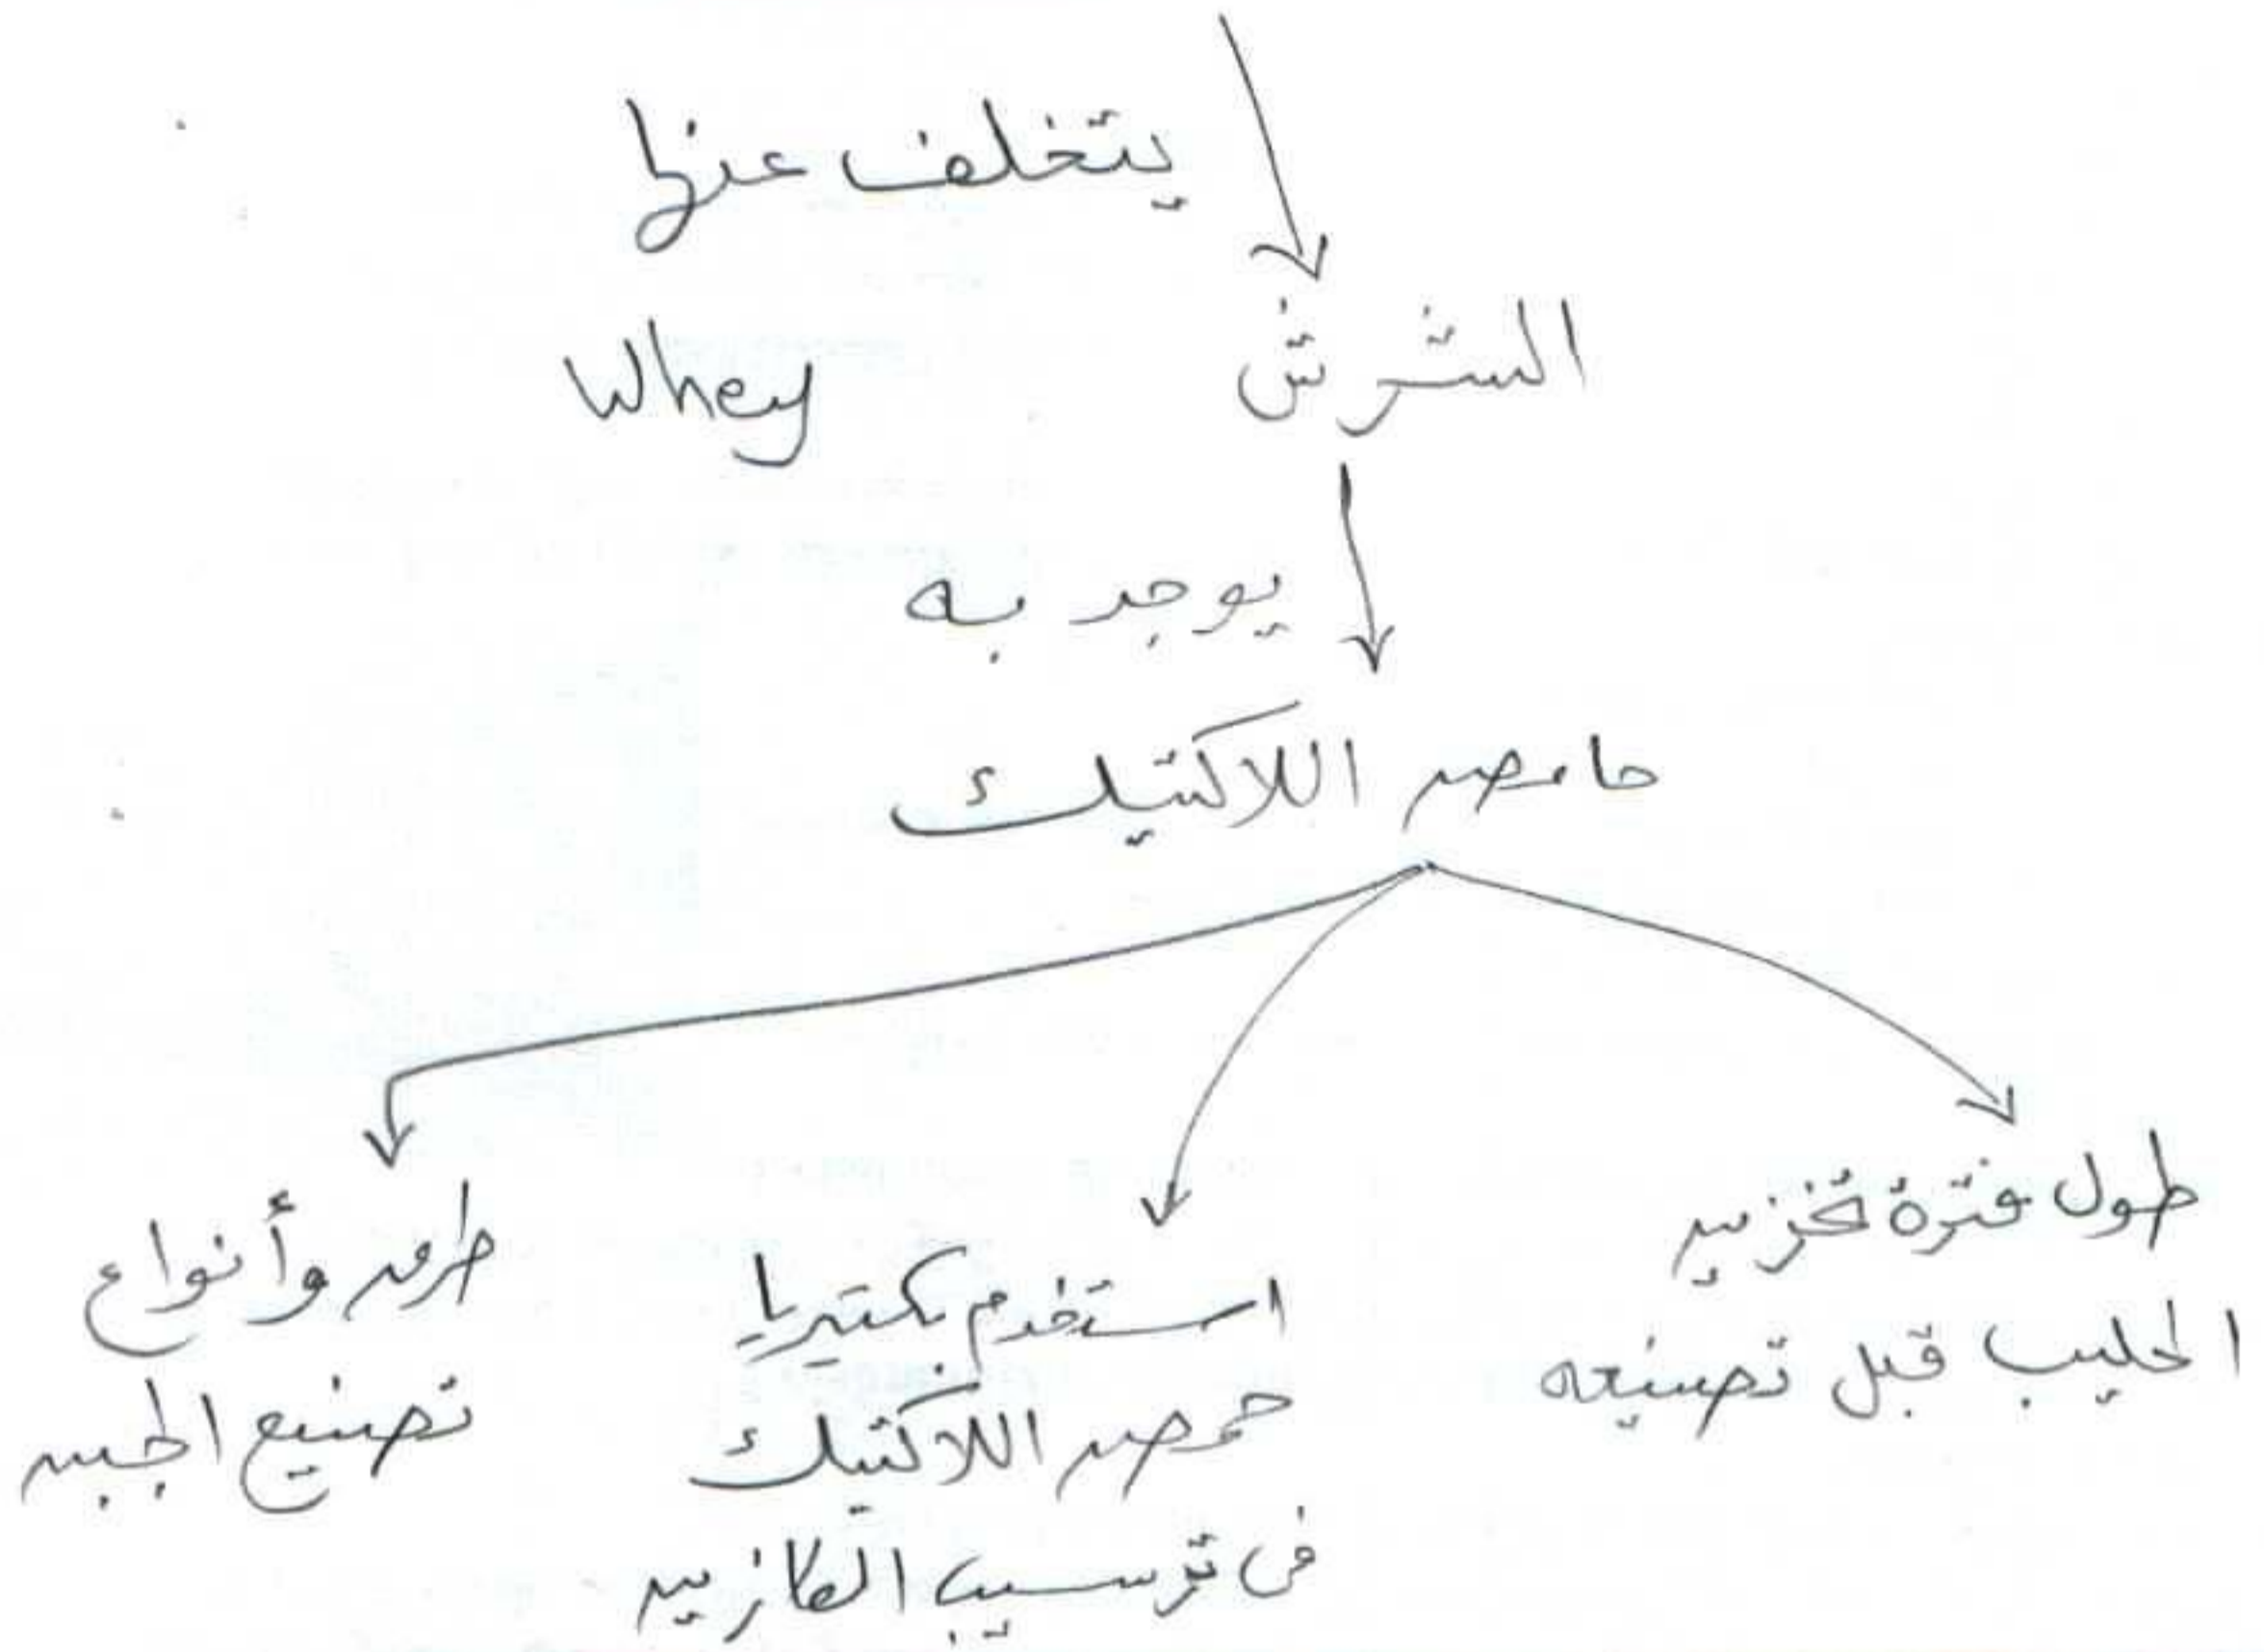 يتخلف عنها
الشرش Whey
يوجد به
حامض اللاكتيك
طول فترة تخزين
الحليب قبل تصنيعه
استخدم بكتيريا
حمض اللاكتيك
فى ترسيب الكازين
طرق وأنواع
تصنيع الجبن